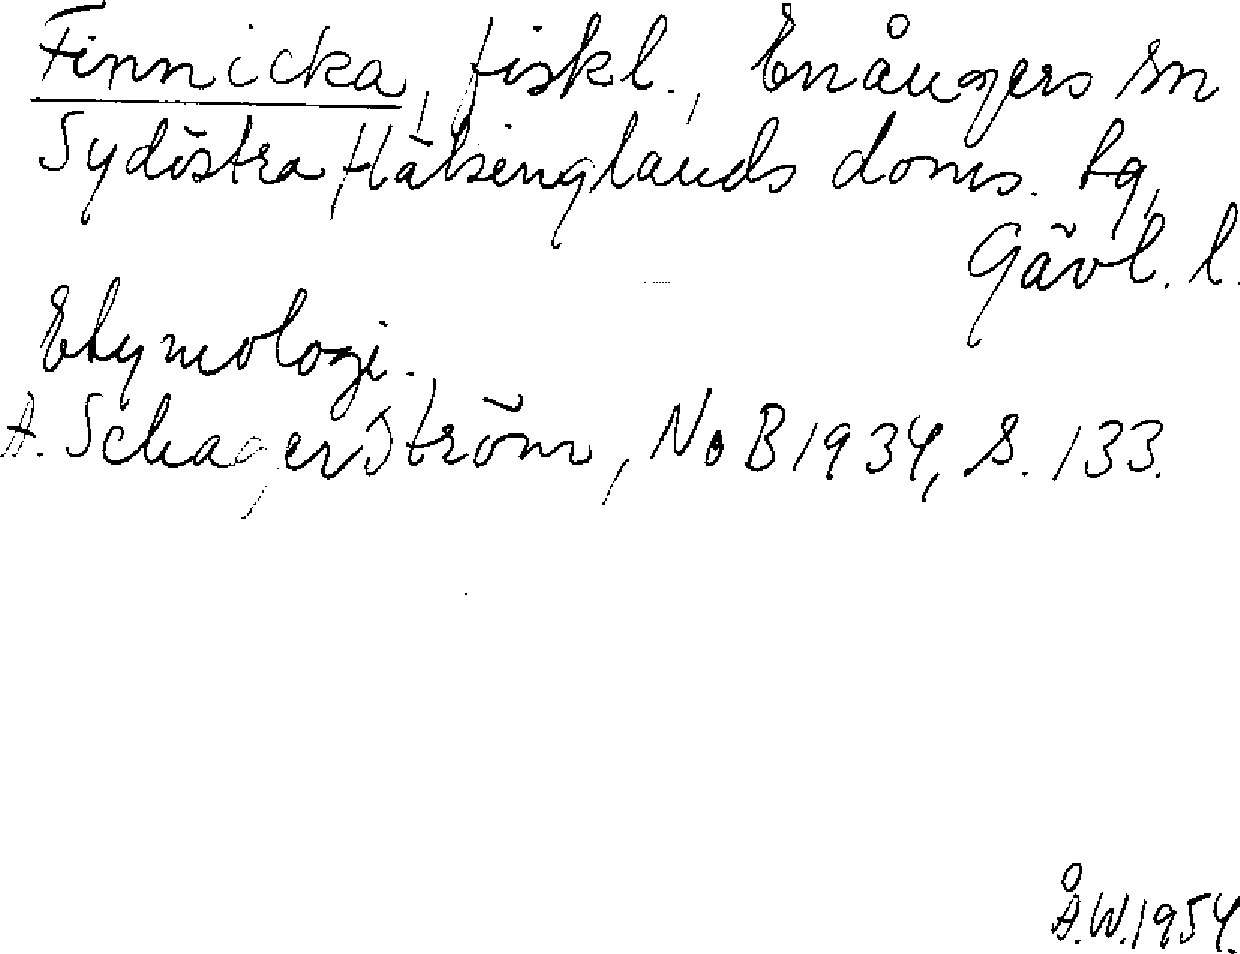 Finnicka, fiskl., Enångers sn
Sydöstra Hälsinglands doms. tg,
Gävl. l.
Etymologi.
A. Schagerström, NoB 1934, s. 133.
Å.W. 1954.